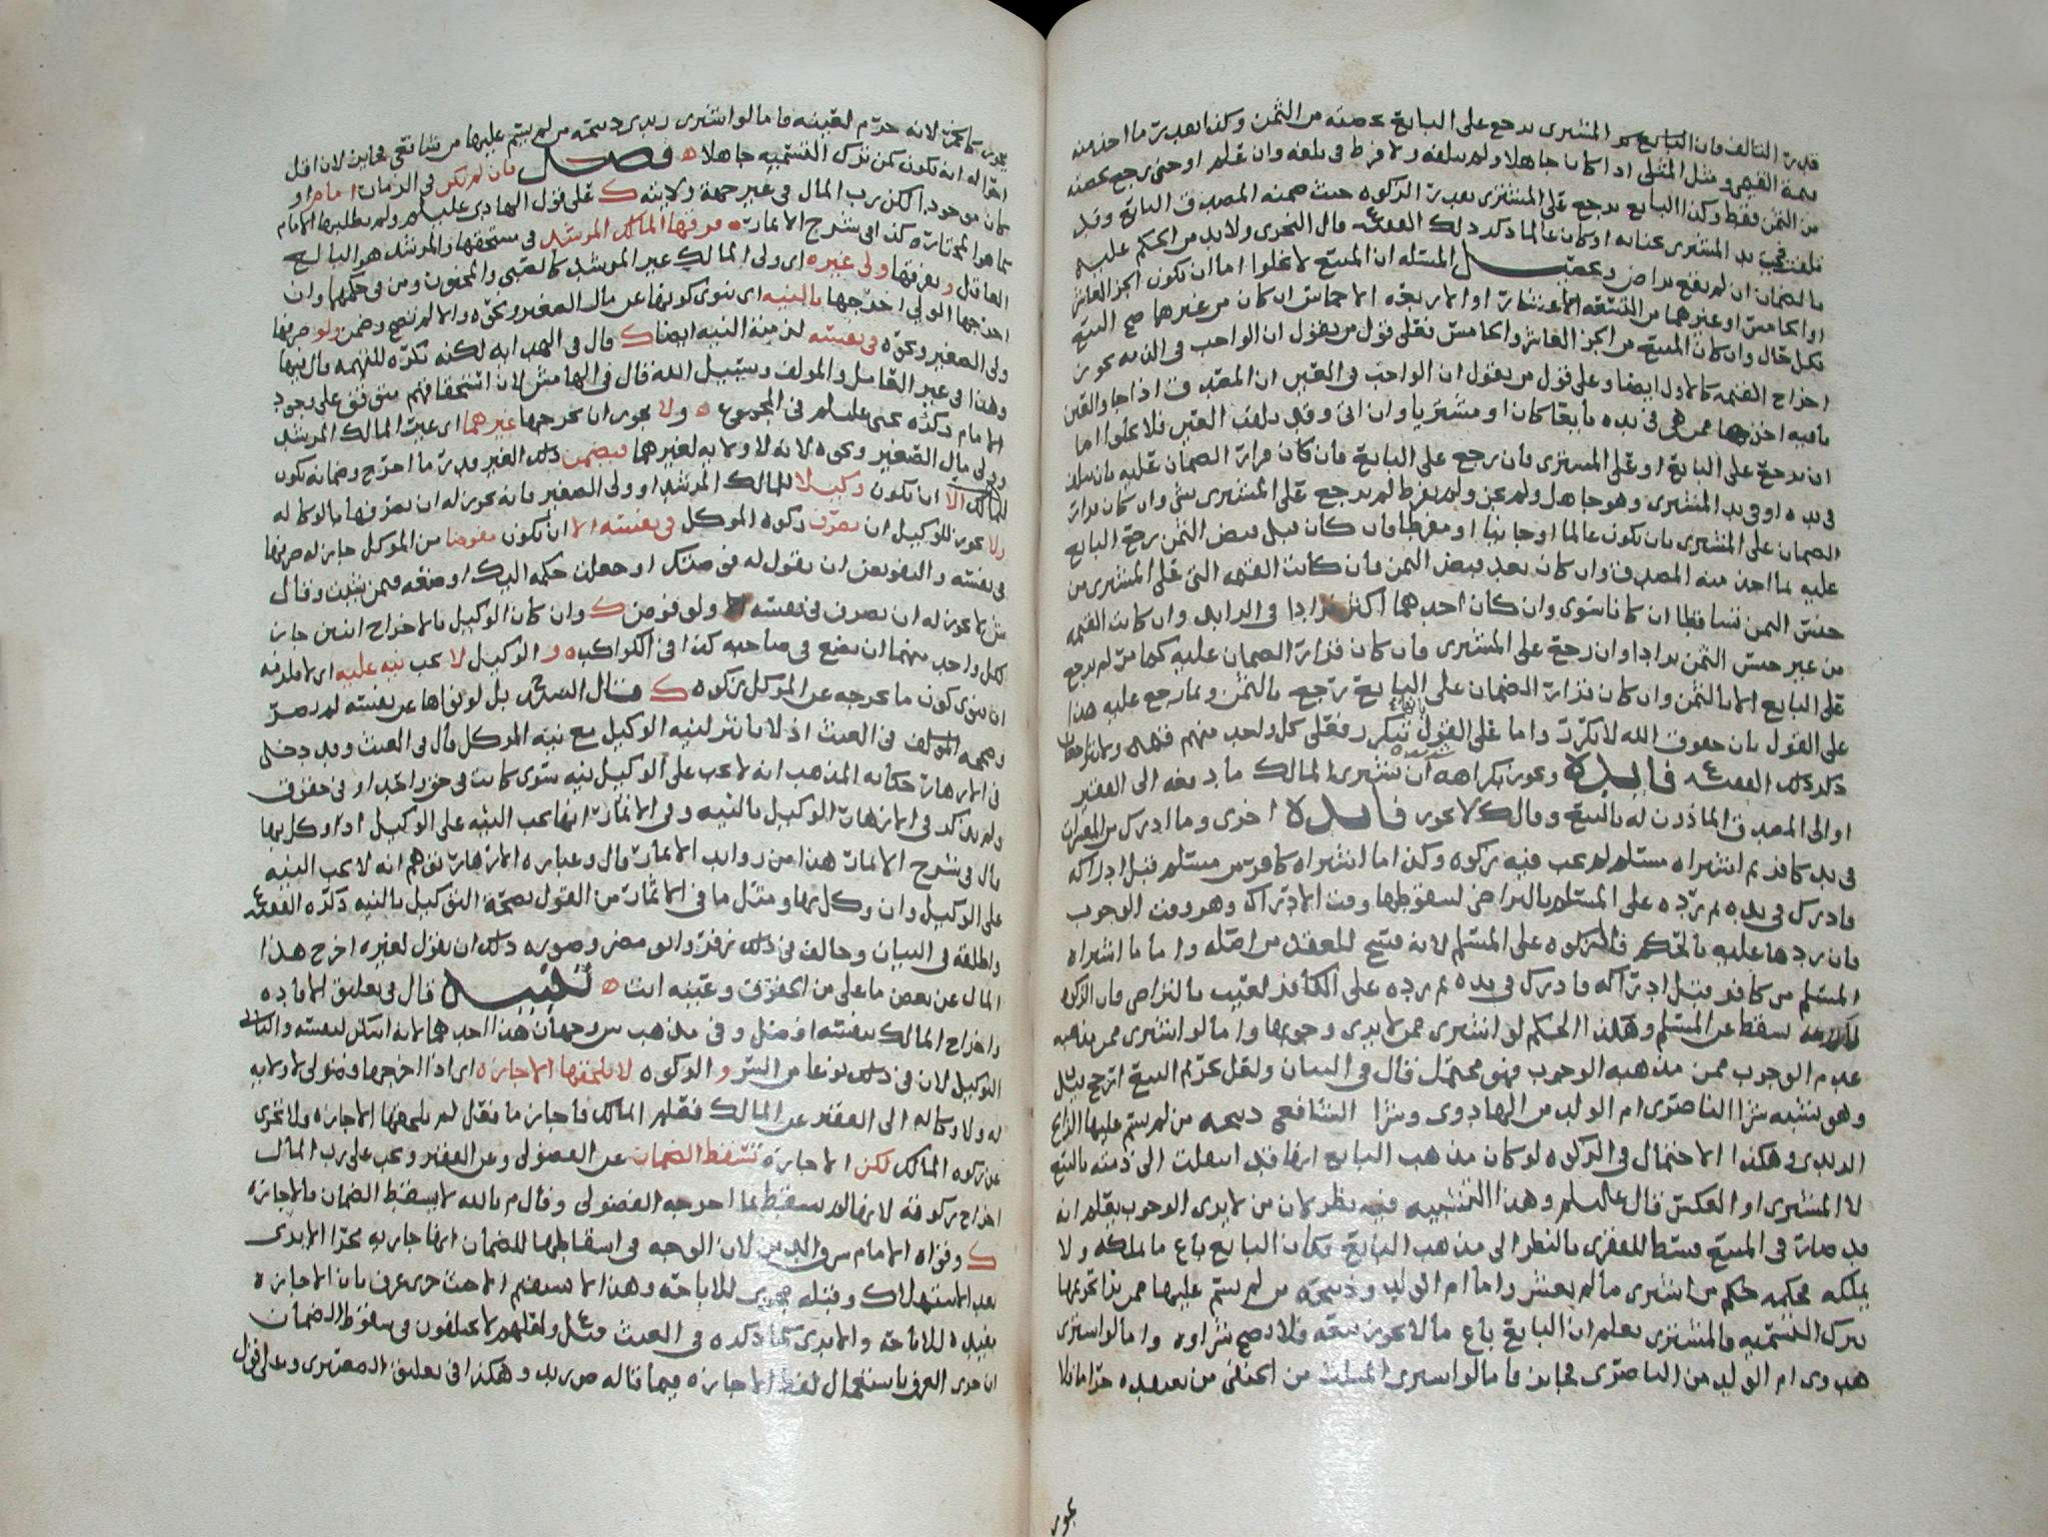 قدر التالف فان البايع المشترى يرجع على البايع بحصته من الثمن وكذا بعد ما اخذ منه
قيمة القيمي ومثل المثلى اذا كان جاهلا ولم يتلفه ولا فرط فى تلفه وان علم او جنى رجع بحصته
من الثمن فقط وكذا البايع يرجع على المشترى بقدر الزكوه حيث ضمنه المصدق البايع وقد
تلفت فى يد المشترى بجنايه او كان عالما ذكر ذلك الفقيه قال النجرى ولا بد من الحكم عليه
بالضمان ان لم يقع تراض المسئله ان المبيع لا يخلوا اما ان يكون الجزء العاشر
او الخامس او غيرهما من التسعه الاعشار او الاربعه الاخماس ان كان من غيرها صح البيع
بكل حال وان كان المبيع هو الجزء العاشر والخامس فعلى قول من يقول ان الواجب فى الذمه يجوز
اخراج القيمه كالاول ايضا وعلى قول من يقول ان الواجب فى العين ان المصدق اذا جا والعين
باقيه اخذها ممن هى فى يده بايعا كان او مشتريا وان اتى وقد تلفت العين فلا يخلوا اما
ان يرجع على البايع او على المشترى فان رجع على البايع فان كان قرار الضمان عليه بان تلف
فى يده او فى يد المشترى وهو جاهل ولم يجن ولم يفرط لم يرجع على المشترى بشى وان كان قرار
الضمان على المشترى بان يكون عالما او جانيا او مفرطا فان كان قبل قبض الثمن رجع البايع
عليه بما اخذ منه المصدق وان كان بعد قبض الثمن فان كانت القيمه التى على المشترى من
جنس الثمن تساقطا ان كانا سوى وان كان احدهما اكثر ترادا فى الزايد وان كانت القيمه
من غير جنس الثمن ترادا وان رجع على المشترى فان كان قرار الضمان عليه كما مر لم يرجع
على البايع الا بالثمن وان كان قرار الضمان على البايع رجع بالثمن وبما رجع عليه هذا
على القول بان حقوق الله لا تكرر واما على القول بتكرر فعلى كل واحد منهم
ذكر ذلك الفقيه فايده ويجوز بكراهه ان يشترى المالك ما دفعه الى الفقير
او الى المصدق الماذون له بالبيع وقال ك لا يجوز فايده اخرى وما ادرك
فى يد كافر ثم اشتراه مسلم لم يجب فيه زكوه وكذا ما اشتراه كافر من مسلم قبل ادراكه
فادرك فى يده ثم رده على المسلم بالتراضى لسقوطها وقت الادراك وهو وقت الوجوب
فان ردها عليه بالحكم فالزكوه على المسلم لانه فسخ للعقد من اصله واما ما اشتراه
المسلم من كافر قبل ادراكه فادرك فى يده ثم رده على الكافر لعيب بالتراضى فان الزكوه
تسقط عن المسلم وهكذا الحكم لو اشترى ممن لا يرى وجوبها واما لو اشترى ممن مذهبه
عدم الوجوب ممن مذهبه الوجوب فهو محتمل قال فى البيان ولعل تحريم البيع ارجح
وهو يشبه شرا الناصرى ام الولد من الهادوى وشرا الشافعى ذبيحه من لم يسم عليها
الزيدى وهكذا الاحتمال فى الزكوه لو كان مذهب البايع انها قد انتقلت الى ذمته بالبيع
لا المشترى او العكس قال عليلم وهذا التشبيه فيه نظر لان من لا يرى الوجوب يعلم انه
قد صار فى المبيع قسط للفقرى بالنظر الى مذهب البايع فكان البايع باع ما يملكه ولا
يملكه فحكمه حكم من اشترى ما لم يعشر واما ام الولد وذبيحة من لم يسم عليها ممن يرى تحريمها
بترك التسميه فالمشترى يعلم ان البايع باع ما لا يجوز بيعه فلا يصح شراوه واما لو اشترى
هدوى ام الولد من الناصرى فجايز فاما لو اشترى المثلث من الحنفى من يعتقده حراما فلا
يجوز
يجوز كالخمر لانه حرم لعينه فاما لو اشترى زيدى ذبيحة من لم يسم عليها من شافعى فجايز لان اقل
احواله ان يكون كمن ترك التسميه جاهلا ه فصل فان لم يكن فى الزمان امام او
كان موجودا لكن رب المال فى غير جهة ولايته ك على قول الهادى عليلم ولم يطلبها الامام
كما هو المختار كذا فى شرح الاثمار فرقها المالك المرشد فى مستحقها والمرشد هو البالغ
العاقل ويفرقها ولى غيره اى ولى المالك غير المرشد كالصبى والمجنون ومن فى حكمهما وان
اخرجها الولى اخرجها بالنيه اى ينوى كونها عن مال الصغير ونحوه والا لم تصح وضمن ولو صرفها
ولى الصغير ونحوه فى نفسه لزمته النيه ايضا ك قال فى الهدايه لكنه تكره للتهمه قال فيها
وهذا فى غير العامل والمولف وسبيل الله قال فى الهامش لان استحقاقهم متوقف على وجود
الامام ذكره يحيى عليلم فى المجموع ه ولا يجوز ان يخرجها غيرهما اى غير المالك المرشد
وولى مال الصغير ونحوه لانه لا ولايه لغيرهما فيضمن ذلك الغير قدر ما اخرج وضمانه يكون
للمالك الا ان يكون وكيلا للمالك المرشد او ولى الصغير فانه يجوز له ان يصرفها بالوكاله
ولا يجوز للوكيل ان يصرف زكوه الموكل فى نفسه الا ان يكون مفوضا من الموكل جاز له صرفها
فى نفسه والتفويض ان يقول له فوضتك او جعلت حكمه اليك او ضعه فيمن شيت وقال
ش لا يجوز له ان يصرف فى نفسه ولو فوض ك وان كان الوكيل بالاخراج اثنين جاز
لكل واحد منهما ان يضع فى صاحبه كذا فى الكواكب ه و الوكيل لا يجب نيه عليه اى لا يلزمه
ان ينوى كون ما يخرجه عن الموكل زكوه ك قال بل لو نواها عن نفسه لم يضر
وصححه المولف فى الغيث اذ لا تاثير لنيه الوكيل مع نيه الموكل قال فى الغيث وقد دخل
فى الازهار حكايه المذهب انه لا يجب على الوكيل نيه سوى كانت فى حق واحد او فى حقوق
ولم يذكر فى الازهار الوكيل بالنيه وفى الاثمار انها تجب النيه على الوكيل اذا وكل بها
قال فى شرح الاثمار هذا من زوايد الاثمار قال وعباره الازهار توهم انه لا تجب النيه
على الوكيل وان وكل بها ومثل ما فى الاثمار من القول بصحة التوكيل بالنيه ذكره الفقيه
واطلقه فى البيان وخالف فى ذلك زفر وابو مضر وصوره ذلك ان يقول لغيره اخرج هذا
المال عن بعض ما على من الحقوق وعينه انت ه تنبيه قال فى تعليق الافاده
واخراج المالك بنفسه افضل وفى مذهب ش وجهان هذا احدهما لانه اشكر لنفسه والثانى
التوكيل لان فى ذلك نوعا من الستر و الزكوه لا تلحقها الاجازه اى اذا اخرجها فضولى لا ولايه
له ولا وكاله الى الفقير عن المالك فعلم المالك فاجاز ما فعل لم تلحقها الاجازه ولا تجزى
عن زكوه المالك لكن الاجازه تسقط الضمان عن الفضولى وعن الفقير ويجب على رب المال
اخراج زكوته لانها لم تسقط بما اخرجه الفضولى وقال م بالله لا يسقط الضمان بالاجازه
ك وقواه الامام س والدين لان الوجه فى اسقاطها للضمان انها جاريه مجرى الابرى
بعد الاستهلاك وقبله مجرى للاباحه وهذا لا يستقيم الا حيث جرى عرف بان الاجازه
تفيد الاباحه والابرى كما ذكره فى الغيث قيل ولعلهم لا يختلفون فى سقوط الضمان
ان جرى العرف باستعمال لفظ الاجازه فيما قاله ص زيد وهكذا فى تعليق الصعيترى وعلى قول